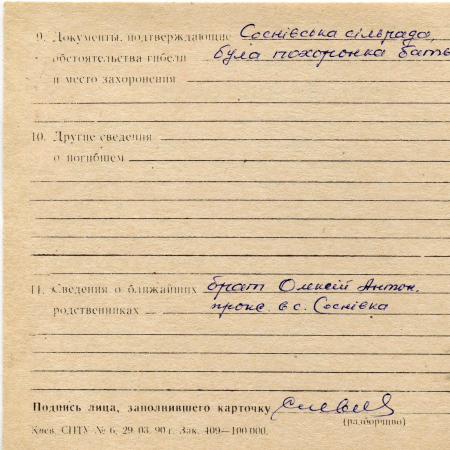 9. Документы, подтверждающие Соснівська сільрада,
обстоятельства гибели була похоронка бать
и место захоронения
10. Другие сведения
о погибшем
11. Сведения о ближайших брат Олексій Антон.
родственниках прож. в с. Соснівка
Подпись лица, заполнившего карточку
(разборчиво)
Киев. СПТУ № 6. 29. 03. 90 г. Зак. 409—100 000.